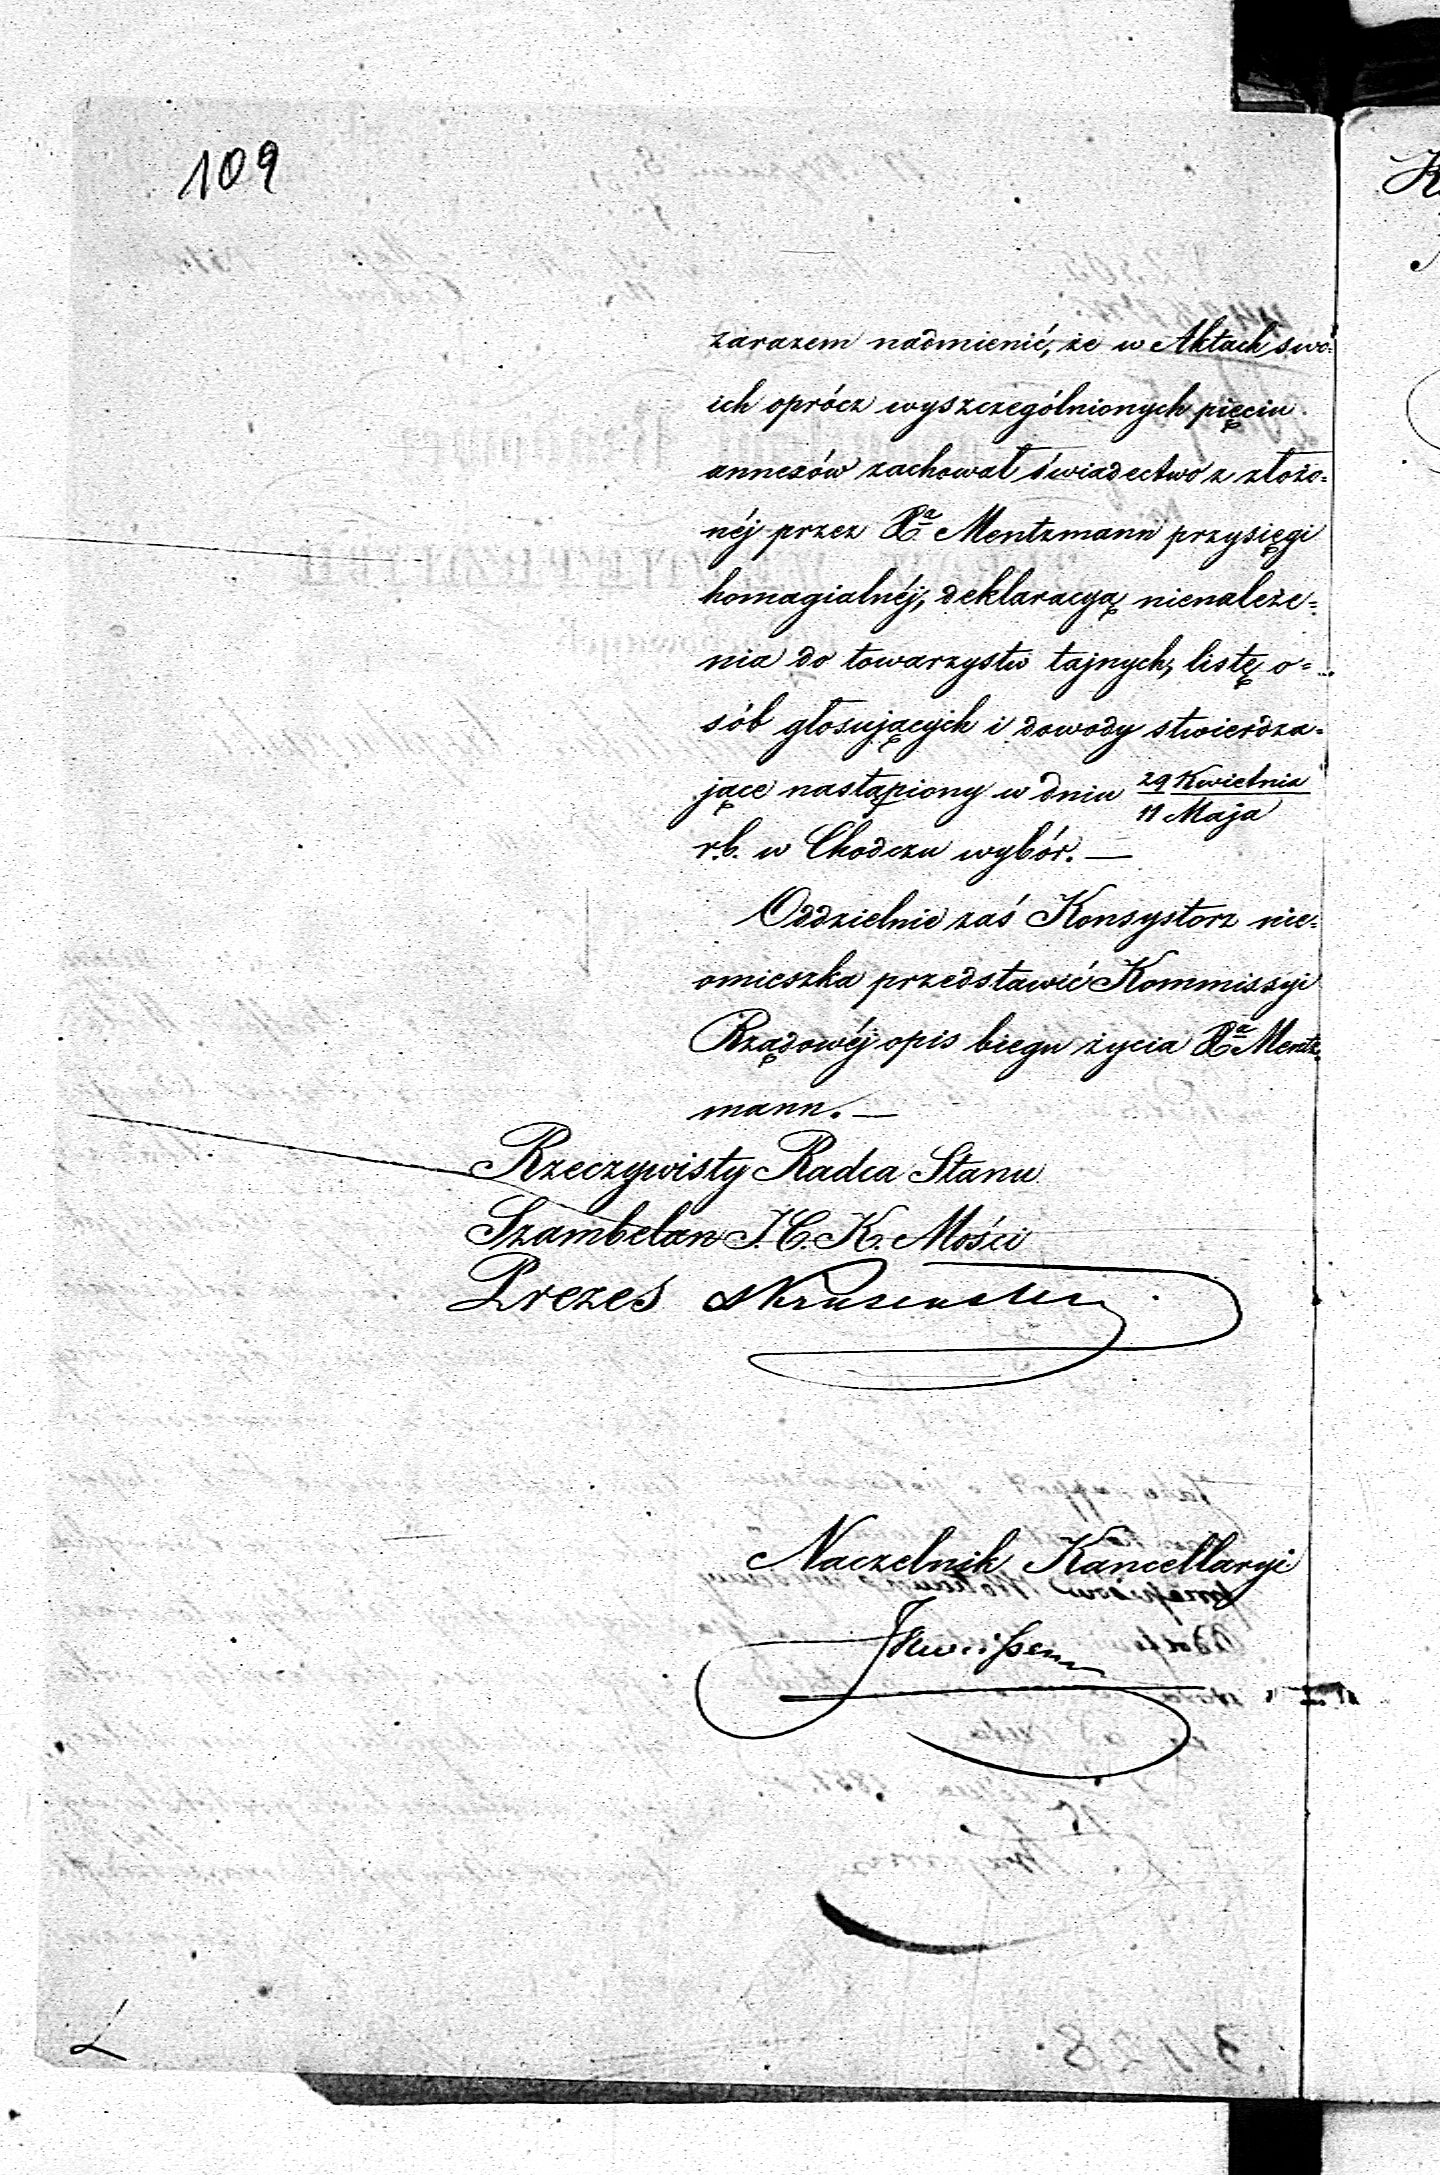 109
zarazem nadmienić, że w Aktach swo=
ich oprócz wyszczególnionych pięciu
annexów zachował świadectwo z złożo=
néj przez Xa Mentzmann przysięgi
homagialnéj, deklaracyą nienależe=
nia do towarzystw tajnych, listę o=
sób głosujących i dowody stwierdza=
jące nastąpiony w dniu 29 Kwietnia
11 Maja
r.b. w Chodczu wybór. —
Oddzielnie zaś Konsystorz nie=
omieszka przedstawić Kommissyi
Rządowéj opis biegu życia Xa Mentz=
mann. —
Rzeczywisty Radca Stanu
Szambelan J. C. K. Mości
Prezes
Naczelnik Kancellaryi